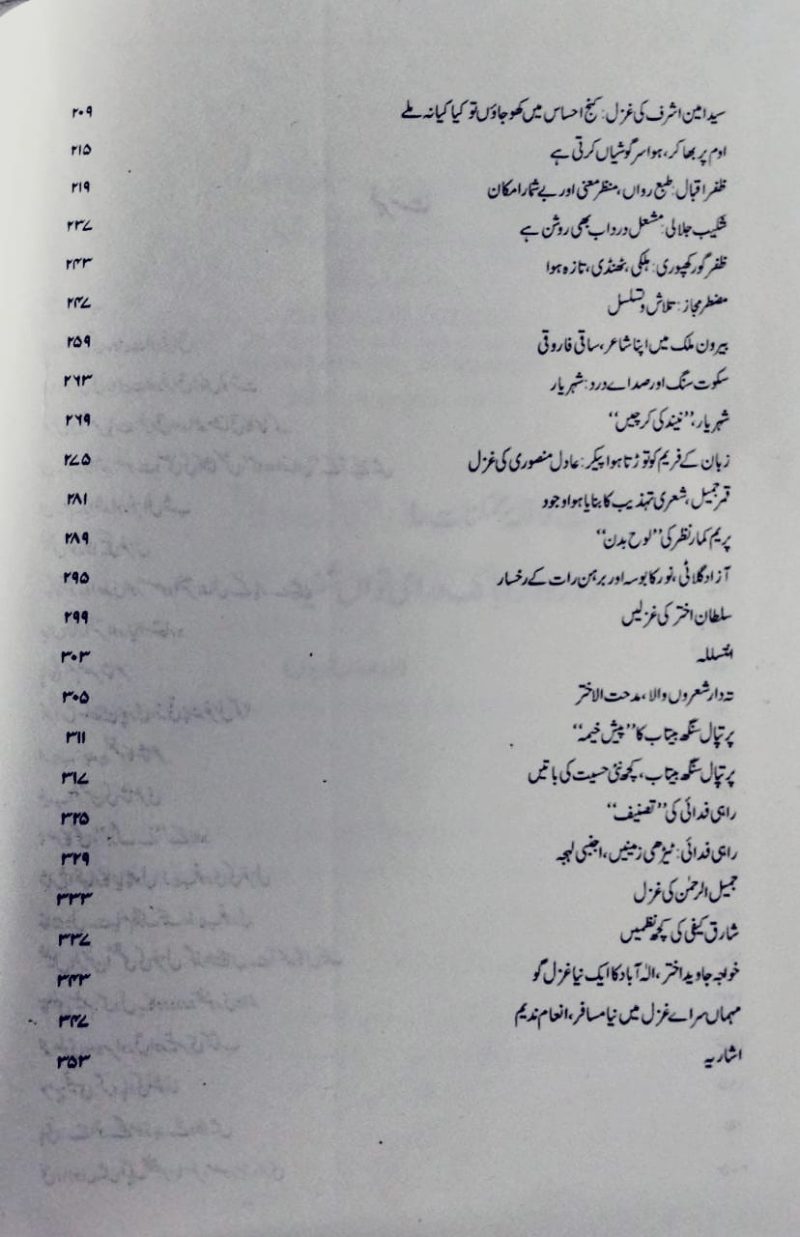 سید امین اشرف کی غزل: کنج احساس میں کھو جاؤں تو کیا کیا نہ ملے ۲۰۹
اوم پربھاکر، ہوا سرگوشیاں کرتی ہے ۲۱۵
ظفر اقبال: طبع رواں، منظر معنی اور بے شمار امکان ۲۱۹
شکیب جلالی: مشعل درد اب بھی روشن ہے ۲۳۷
ظفر گورکھپوری: ہلکی، ٹھنڈی، تازہ ہوا ۲۴۳
مضطر مجاز: تلاش و تسلسل ۲۴۷
بیرون ملک میں اپنا شاعر، ساقی فاروقی ۲۵۹
سکوت سنگ اور صداے درد: شہریار ۲۶۳
شہریار، ”نیند کی کرچیں“ ۲۶۹
زبان کے فریم کو توڑتا ہوا پیکر: عادل منصوری کی غزل ۲۷۵
قمر جمیل، شعری تہذیب کا بنایا ہوا وجود ۲۸۱
پریم کمار نظر کی ”لوح بدن“ ۲۸۹
آزاد گلاٹی، نور کا بوسہ اور برہن رات کے رخسار ۲۹۵
سلطان اختر کی غزلیں ۲۹۹
۳۰۳
تہ دار شعروں والا، مدحت الاختر ۳۰۵
پرتپال سنگھ بیتاب کا ”پیش خیمہ“ ۳۱۱
پرتپال سنگھ بیتاب، کچھ نئی حسیت کی باتیں ۳۱۷
راہی فدائی کی ”تصنیف“ ۳۲۵
راہی فدائی: ٹیڑھی زمینیں، اجنبی لہجہ ۳۲۹
جمیل الرحمٰن کی غزل ۳۳۳
شارق کیفی کی کچھ نظمیں ۳۳۷
خواجہ جاوید اختر، الٰہ آباد کا ایک نیا غزل گو ۳۴۳
مہماں سراے غزل میں نیا مسافر، انعام ندیم ۳۴۷
اشاریہ ۳۵۳